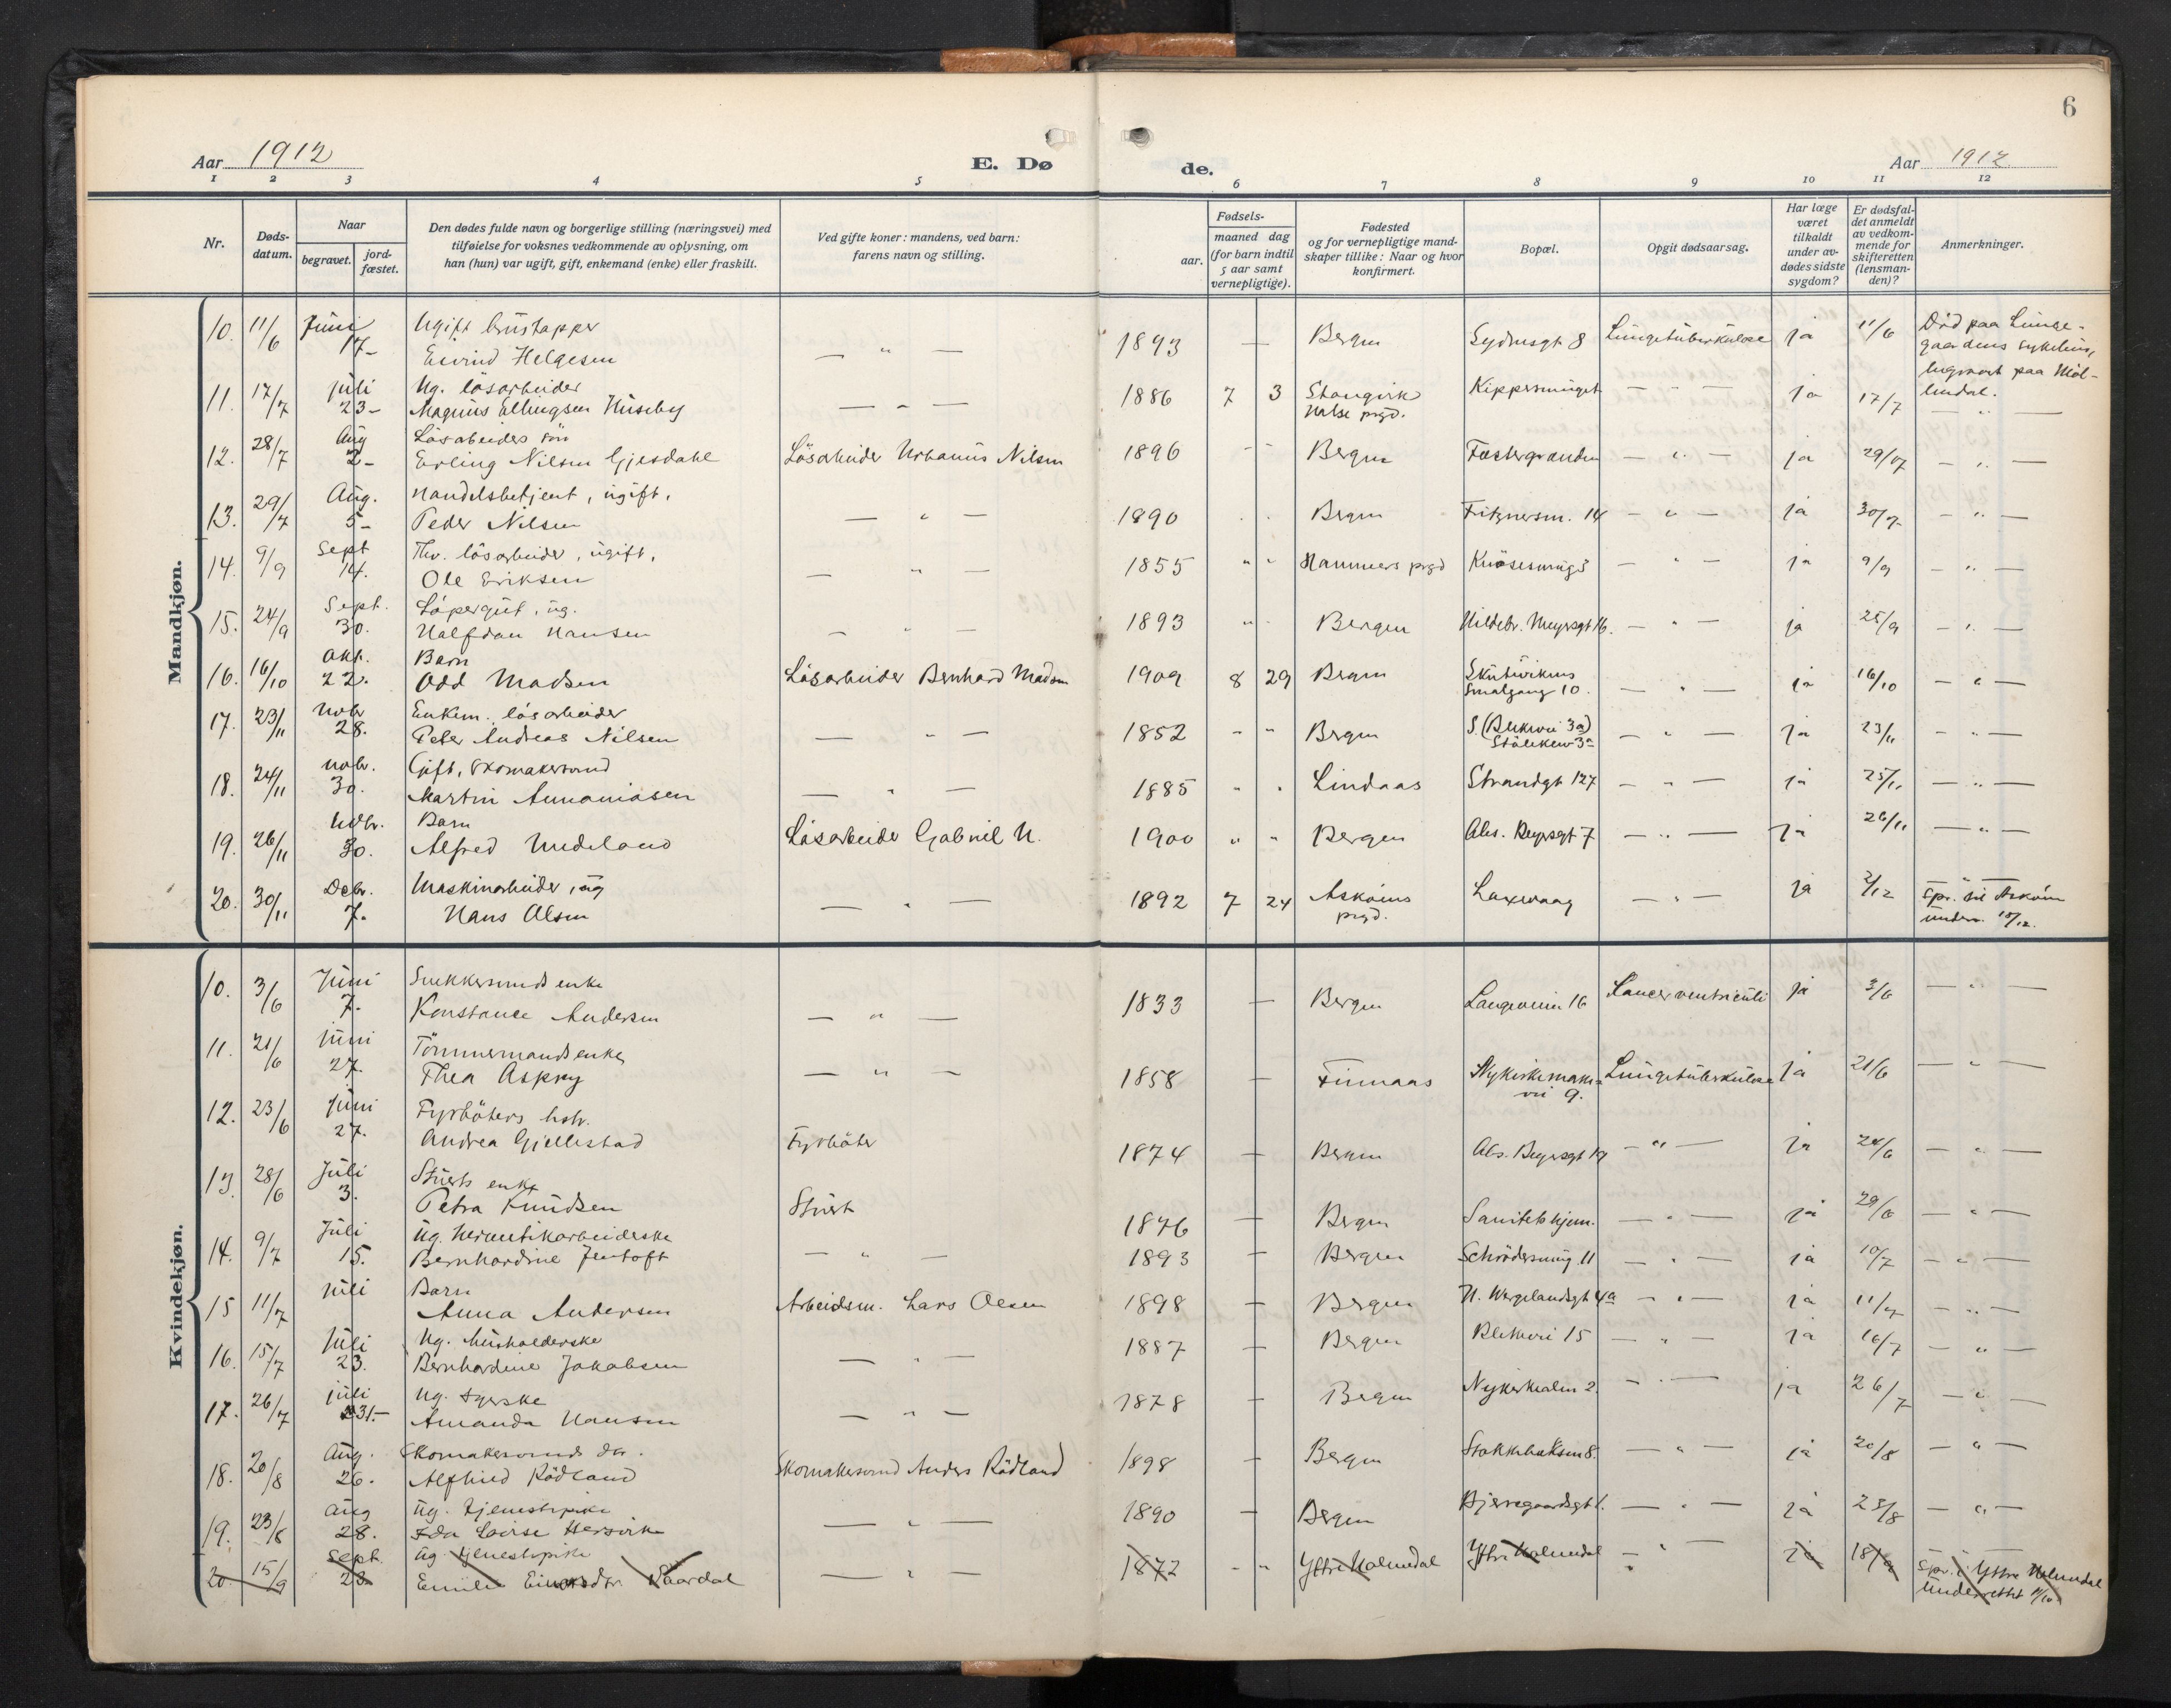 6
Aar 1912
E. Dø
de.
Aar 1912
1 2 3 4 5 6 7 8 9 10 11 12
Nr.
Døds-
datum.
Naar
begravet.
jord-
fæstet.
Den dødes fulde navn og borgerlige stilling (næringsvei) med
tilføielse for voksnes vedkommende av oplysning, om
han (hun) var ugift, gift, enkemand (enke) eller fraskilt.
Ved gifte koner: mandens, ved barn:
farens navn og stilling.
Fødsels-
aar.
maaned dag
(for barn indtil
5 aar samt
vernepligtige).
Fødested
og for vernepligtige mand-
skaper tillike: Naar og hvor
konfirmert.
Bopæl.
Opgit dødsaarsag.
Har læge
været
tilkaldt
under av-
dødes sidste
sygdom?
Er dødsfal-
det anmeldt
av vedkom-
mende for
skifteretten
(lensman-
den)?
Anmerkninger.
Mandkjøn.
10. 11/6 Juni Ugift
17- Eivind Helgesen — " — 1893 — Bergen Sydnesgt 8 Lungetuberkulose ja 11/6 Død paa Lunge-
gaardens sykehus,
begravet paa Møl-
lendal.
11. 17/7 juli Ug. løsarbeider
23- Magnus Ellingsen Huseby — " — 1886 7 3 Stangvik Kippersmuget — " — ja 17/7 — " —
Halse prgd.
12. 28/7 Aug Løsarbeiders søn
2- Erling Nilsen Gjesdahl Løsarbeider Urbanus Nilsen 1896 " " Bergen — " — ja 29/07 — " —
13. 29/7 Aug. Handelsbetjent, ugift.
5- Peder Nilsen — " — 1890 " " Bergen Fitznersm. 14 — " — ja 30/7 — " —
14. 9/9 Sept Thv. løsarbeider, ugift.
14. Ole Eriksen — " — 1855 " " Hammers prgd Knøsesmug 3 — " — ja 9/9 — " —
15. 24/9 Sept. Løpergut, ug.
30. Halfdan Hansen — " — 1893 " " Bergen Hildebr. Meyersgt 16. — " — ja 25/9 — " —
16. 16/10 Okt. Barn
22. Odd Madsen Løsarbeider Bernhard Madsen 1909 8 29 Bergen Skuteviksens
Smalgang 10. — " — ja 16/10 — " —
17. 23/11 Novbr Enkem. løsarbeider
28. Peter Andreas Nilsen — " — 1852 " " Bergen S. (Blekevei 3a)
Stølekleiv 3a — " — ja 23/11 — " —
18. 24/11 novbr. Gift, skomakersvend
30. Martin Annaniasen — " — 1885 " " Lindaas Strandgt 127 — " — ja 25/11 — " —
19. 26/11 Novbr. Barn
30. Alfred Undeland Løsarbeider Gabriel U. 1900 " " Bergen Abs. Beyersgt 7 — " — ja 26/11 — " —
20. 30/11 Decbr. Maskinarbeider, ug
7. Hans Olsen — " — 1892 7 24 Askøens Laxevaag — " — ja 2/12 Spr. til Askøen
prgd. underr. 10/12.
Kvindekjøn.
10. 3/6 Juni Snekkersvends enke
7. Konstance Andersen — " — 1833 — Bergen Langeveien 16 Cancer ventriculi ja 3/6 — " —
11. 21/6 juni Tømmermands enke
27. Thea Asprey — " — 1858 — Finnaas Lungetuberkulose ja 21/6 — " —
vei 9.
12. 23/6 juni Fyrbøters hstr.
27. Andrea Gjellestad Fyrbøter 1874 — Bergen Abs. Beyersgt 19 — " — ja 24/6 — " —
13. 28/6 Juli Stuerts enke
3. Petra Knudsen Stuert 1846 — Bergen Sanitetshjem. — " — ja 29/6 — " —
14. 9/7 Juli Ug. Hermetikarbeiderske
15. Bernhardine Jentoft — " — 1893 — Bergen Schrødersmug 11 — " — ja 10/7 — " —
15 11/7 Juli Barn
Anna Andersen Arbeidsm. Lars Olsen 1898 — Bergen H. Wergelandsgt 4a — " — ja 11/7 — " —
16. 15/7 Juli Ug. husholderske
23. Bernhardine Jakobsen — " — 1887 — Bergen Blekevei 15 — " — ja 16/7 — " —
17. 26/7 juli Ug. syerske
31.- Amanda Hansen — " — 1878 — Bergen Nykirkealm 2. — " — ja 26/7 — " —
18. 20/8 Aug. Skomakersvends dtr.
26. Alfhild Rødland Skomakersvend Anders Rødland 1898 — Bergen 8. — " — ja 20/8 — " —
19. 23/8 Aug Ug. tjenestepike
28. Ida Lovise Hersvik — " — 1890 — Bergen Bjerregaardsgt 1. — " — ja 23/8 — " —
20. 15/9 Sept. Ug. tjenestepike
23. Emilie Vaardal — " — 1872 " " Ytre Holmedal Ytre Holmedal — " — ja 18/9 Spr. i Ytre Holmedal
Underrettet